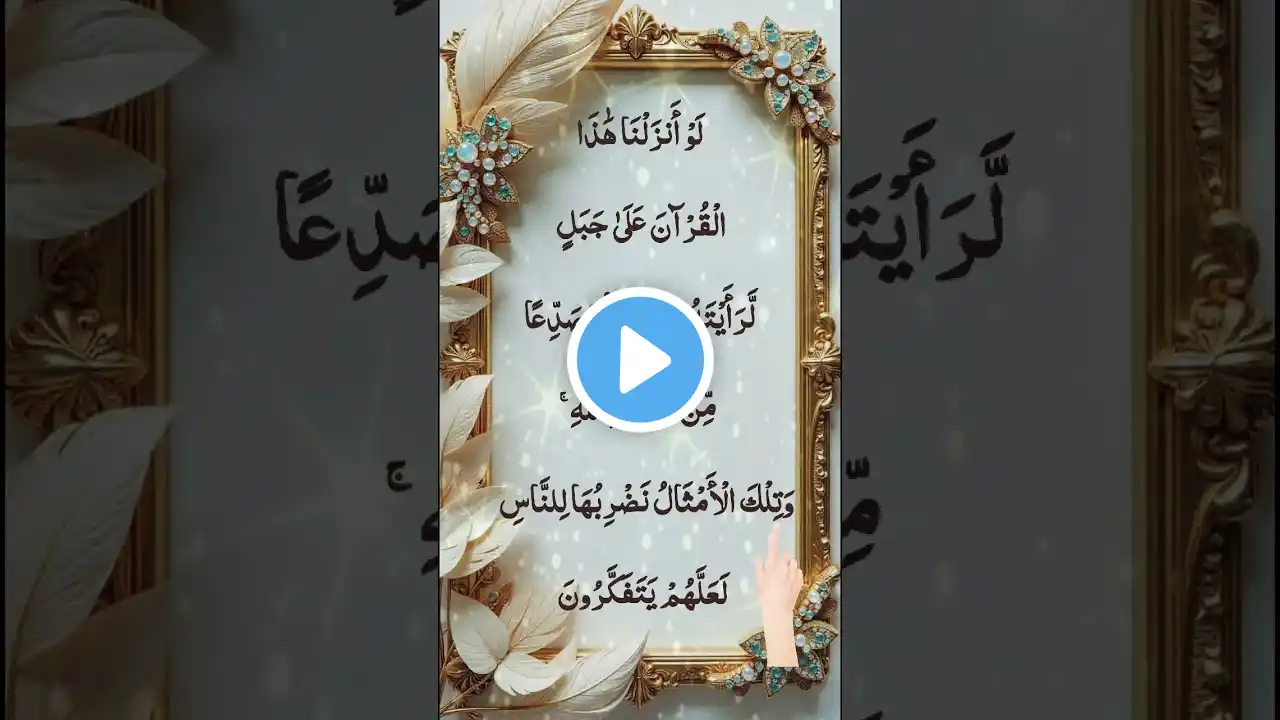 لَوْ أَنزَلْنَا هَٰذَا
الْقُرْآنَ عَلَىٰ جَبَلٍ
لَّرَأَيْتَهُ
مِّنْ
وَتِلْكَ الْأَمْثَالُ نَضْرِبُهَا لِلنَّاسِ
لَعَلَّهُمْ يَتَفَكَّرُونَ